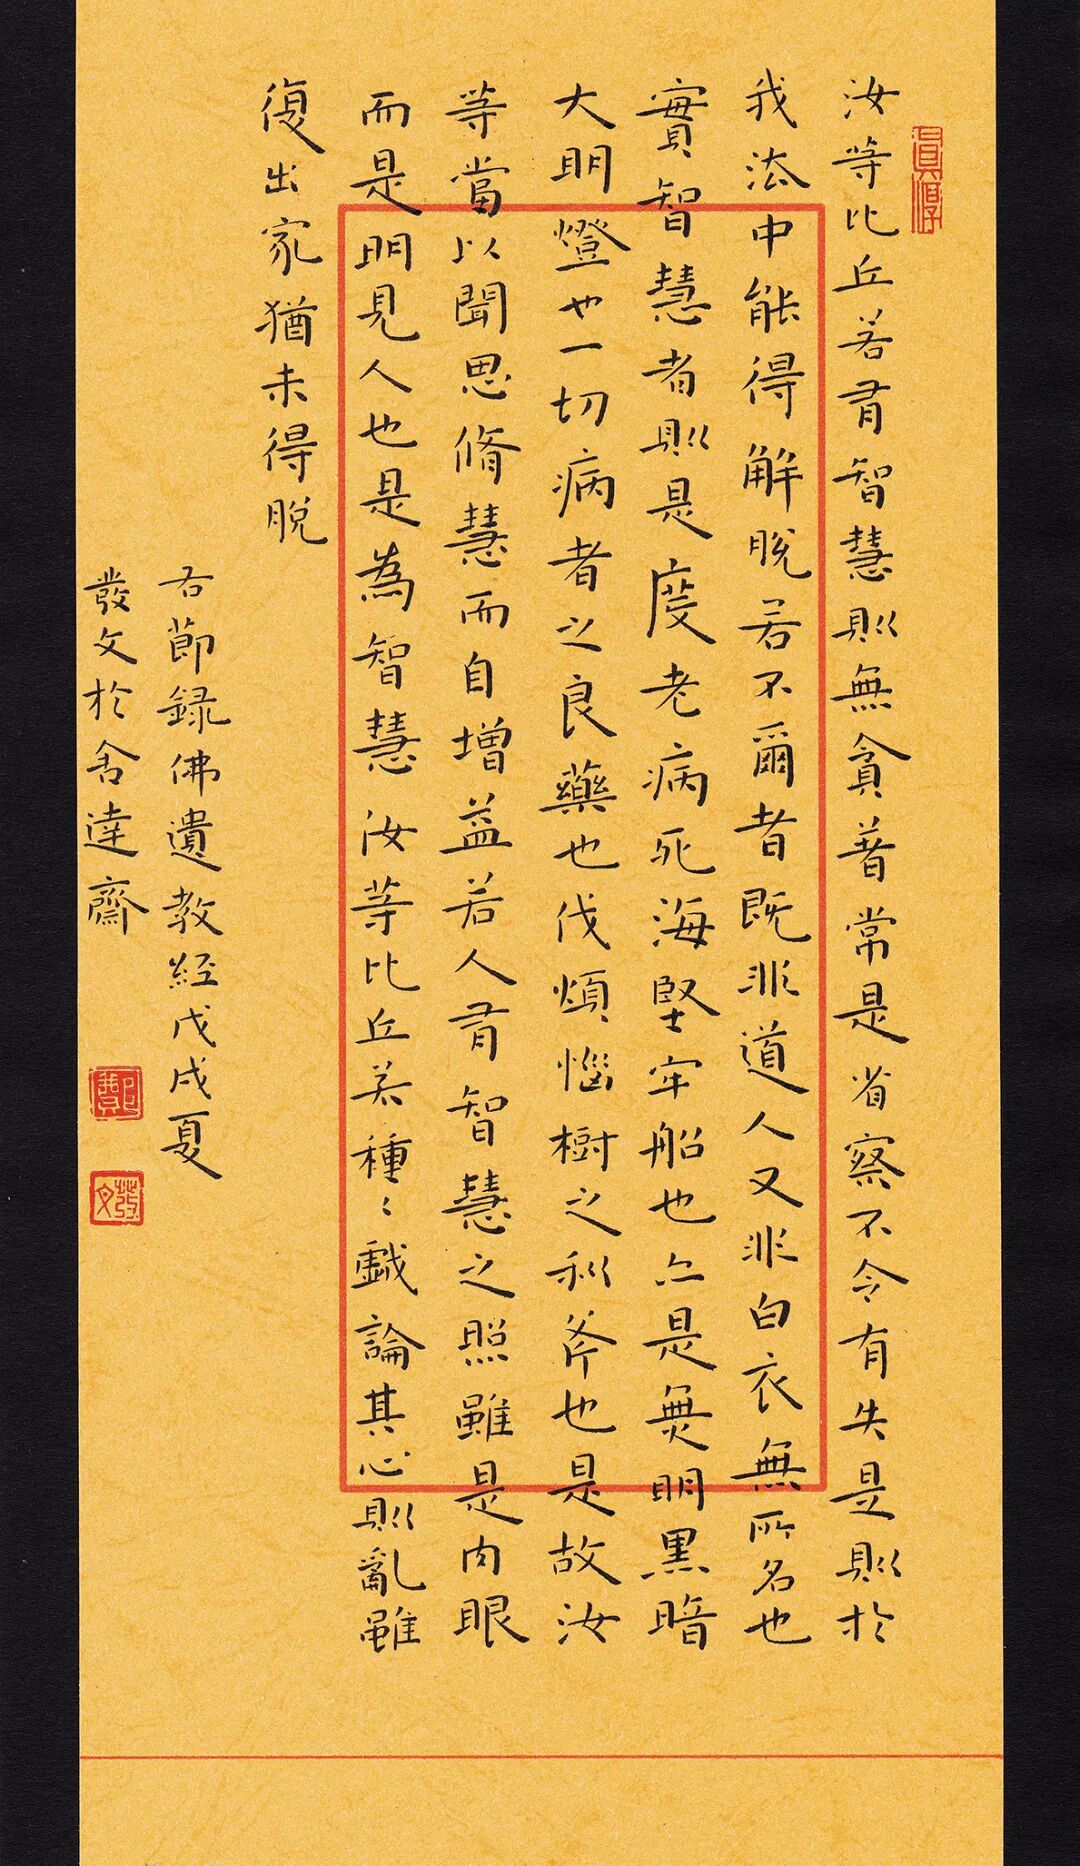 汝等比丘若有智慧則無貪著常是省察不令有失是則於
我法中能得解脫若不爾者既非道人又非白衣無所名也
實智慧者則是度老病死海堅牢船也亦是無明黑暗
大明燈也一切病者之良藥也伐煩惱樹之利斧也是故汝
等當以聞思脩慧而自增益若人有智慧之照雖是肉眼
而是明見人也是為智慧汝等比丘若種〻戲論其心則亂雖
復出家猶未得脫
右節録佛遺教經戊戌夏
發文於舍達齋
鄭
發文